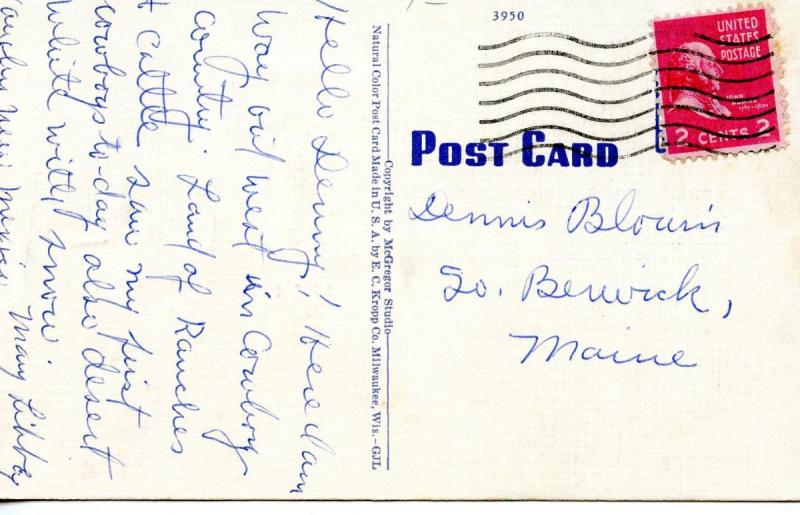 Hello Denny! Here I am
way out west in Cowboy
country. Land of Ranches
& cattle saw my first
cowboys to-day also desert
white with snow.
Mary Libby
Copyright by McGregor Studio
Natural Color Post Card Made in U. S. A. by E. C. Kropp Co. Milwaukee, Wis.—GJL
3950
UNITED
STATES
POSTAGE
JOHN
ADAMS
1797-1801
2 CENTS 2
POST CARD
Dennis Blouin
So. Berwick,
Maine